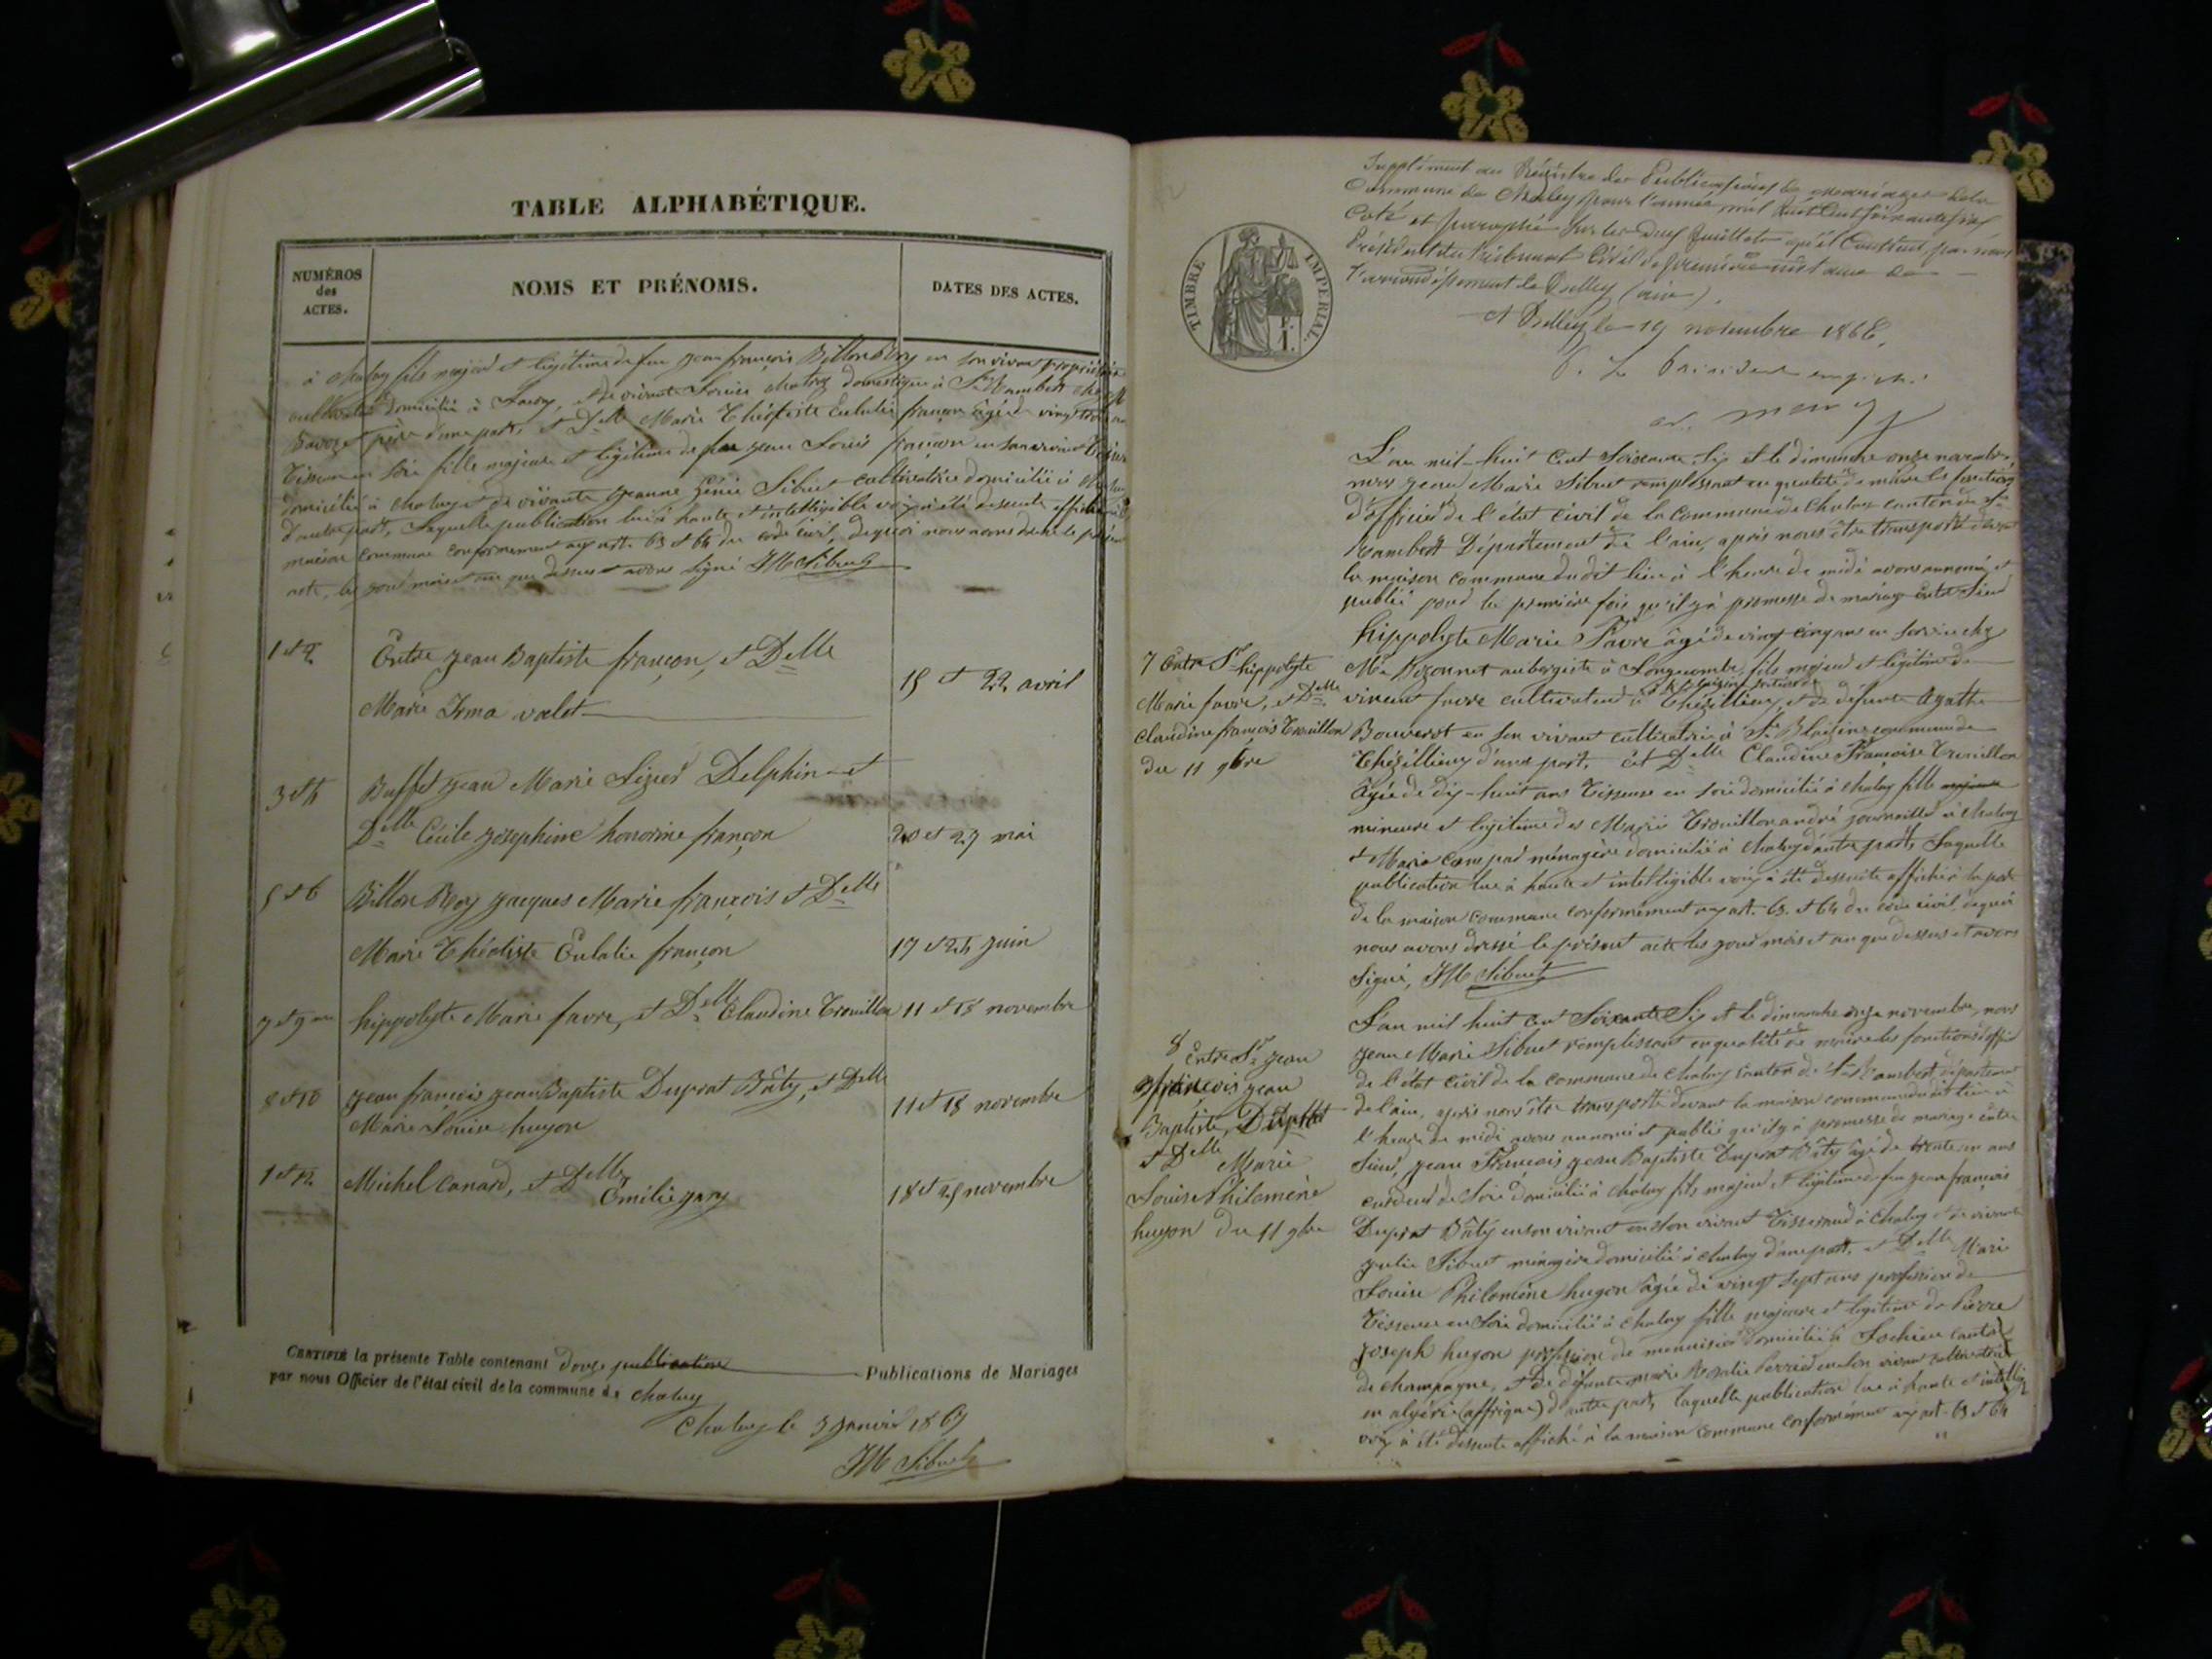 TABLE ALPHABÉTIQUE.
NUMÉROS des ACTES.
NOMS ET PRÉNOMS.
DATES DES ACTES.
à chaley fils majeur et légitime de feu jean françois Billon Rey en son vivant propriétaire
cultivateur domicilié à et de vivante Louise domestique à St Rambert
père d'une part, et Delle Marie Théotiste Eulalie françon âgée de vingt
Tisseuse en soie fille majeure et légitime de feu jean Louis françon en son vivant
domicilié à chaley et de vivante jeanne Sibuet cultivatrice domicilié à
d'autre part, Laquelle publication lue à haute et intelligible voix a été dessuite affiché
maison commune conformement aux art. 63 et 64 du code civil, dequoi nous avons dressé le présent
acte, les jour mois et an que dessus et avons signé JM Sibuet
1 et 2
Entre jean Baptiste françon, et Delle
Marie Irma valet
15 et 22 avril
3 et 4
Buffet jean Marie Delphin et
Delle Cécile josephine honorine françon
20 et 27 mai
5 et 6
Billon Rey jacques Marie françois et Delle
Marie Théotiste Eulalie françon
17 et 24 juin
7 et 9
hippolyte Marie favre, et Delle Claudine Trouillon
11 et 18 novembre
8 et 10
jean françois jean Baptiste Duprat Bâty, et Delle
Marie Louise hugon
11 et 18 novembre
1 et 12
Michel Canard, et Delle
Emilie gary
18 et 25 novembre
CERTIFIÉ la présente Table contenant douze publications Publications de Mariages
par nous Officier de l'état civil de la commune de chaley
Chaley le 3 janvier 1867
JM Sibuet
Supplément au Régistre des Publications de mariages de la
Commune de Chaley pour l'année mil huit Cent soixante six
Coté et paraphé sur les deux feuillets qu'il Contient par nous
Président du Tribunal Civil de première instance de
l'arrondissement de Belley (ain).
A Belley le 19 novembre 1866.
P. Le Président
TIMBRE IMPERIAL.
L'an mil-huit Cent Soixante Six et le dimanche onze novembre,
nous jean Marie Sibuet remplissant en qualité de maire les fonctions
d'officier de l'état civil de la commune de Chaley canton de St
Rambert Département de l'ain, après nous être transporté devant
la maison commune du dit lieu à l'heure de midi avons annoncé et
publié pour la première fois qu'il y a promesse de mariage entre Sieur
hippolyte Marie Favre âgé de vingt cinq ans en service chez
Mr Bizonnet aubergiste à Longecombe, fils majeur et légitime de
vincent favre cultivateur à Thézillieu, et de défunte Agathe
Bouverot en son vivant cultivatrice à St Blaisine commune de
Thézillieu d'une part, et Delle Claudine Françoise Trouillon
âgée de dix-huit ans Tisseuse en soie domicilié à chaley fille majeure
mineure et légitime de Marie Trouillon andré journalier à chaley
et Marie ménagère domicilié à chaley d'autre part, Laquelle
publication lue à haute et intelligible voix a été dessuite affiché à la porte
de la maison commune conformément aux art. 63. et 64 du code civil, dequoi
nous avons dressé le présent acte les jour mois et an que dessus et avons
signé, JM Sibuet
7 Entre Sr hippolyte
Marie favre, et Delle
Claudine françois Trouillon
du 11 9bre
L'an mil huit cent Soixante Six et le dimanche onze novembre, nous
jean Marie Sibuet remplissant en qualité de maire les fonctions d'officier
de l'état civil de la commune de chaley canton de St Rambert département
de l'ain, après nous être transporté devant la maison commune du dit lieu à
l'heure de midi avons annoncé et publié qu'il y a promesse de mariage entre
Sieur, jean François jean Baptiste Duprat Bâty âgé de trente un ans
cardeur de soie domicilié à chaley fils majeur et légitime de feu jean françois
Duprat Bâty en son vivant en son vivant Tisserand à chaley et de vivante
julie Sibuet ménagère domicilié à chaley d'une part, et Delle Marie
Louise Philomène hugon âgée de vingt sept ans profession de
Tisseuse en soie domicilié à chaley fille majeure et légitime de Pierre
joseph hugon profession de menuisier domicilié à Lochieu canton
de champagne, et de défunte marie Rosalie en son vivant cultivatrice
en algérie (affrique) d'autre part, laquelle publication lue à haute et intelligible
voix a été dessuite affiché à la maison commune conformément aux art. 63 et 64
8 Entre Sr jean
françois jean
Baptiste, Duprat
et Delle Marie
Louise Philomène
hugon du 11 9bre